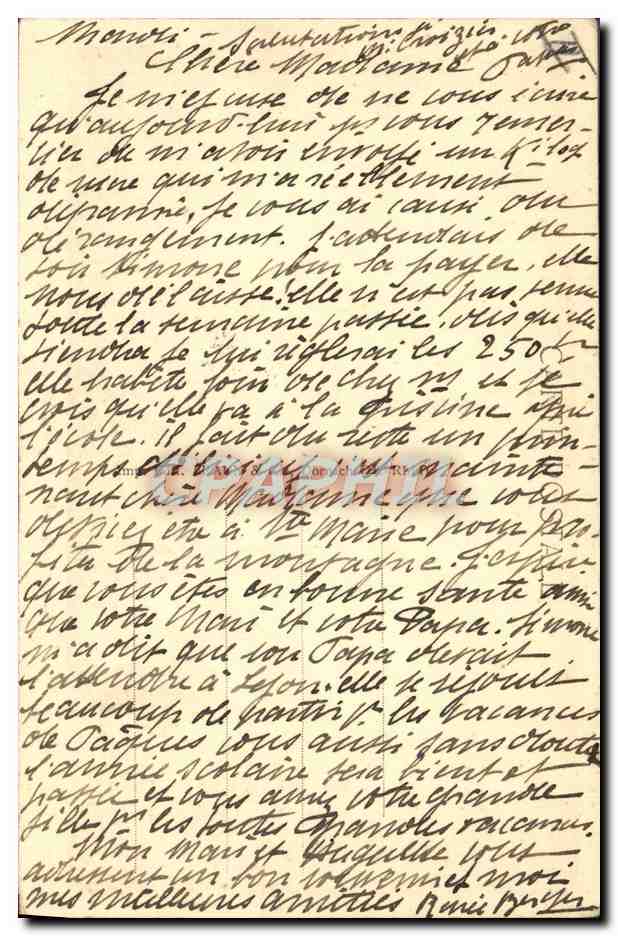 Mardi - Salutations
Chère Madame
Je m'excuse de ne vous écrire
qu'aujourd-hui pr vous remer-
cier de m'avoir envoyé un Kilog
de qui m'a réellement
dépanné, Je vous ai causé du
dérangement. J'attendais de
voir Simone pour la payer, elle
nous délaisse! elle n'est pas venue
toute la semaine passée. dès qu'elle
viendra je lui règlerai les 250 fr
elle habite loin de chez ns et je
crois qu'elle va à la piscine après
l'école. il fait du reste un prin-
temps mainte-
nant chère Madame que vous
devriez être à Ste Marie pour pro-
fiter de la montagne. J'espère
que vous êtes en bonne santé ainsi
que votre Mari et votre Papa. Simone
m'a dit que son Papa devait
l'attendre à Lyon. elle se réjouit
beaucoup de partir pr les vacances
de Pâques vous aussi sans doute
l'année scolaire sera bientôt
passée et vous aurez votre grande
fille pr les toutes Grandes vacances.
Mon Mari et vous
adressent un bon souvenir et moi
mes meilleures amitiés Renée
CARTE POSTALE
CPAPHIL